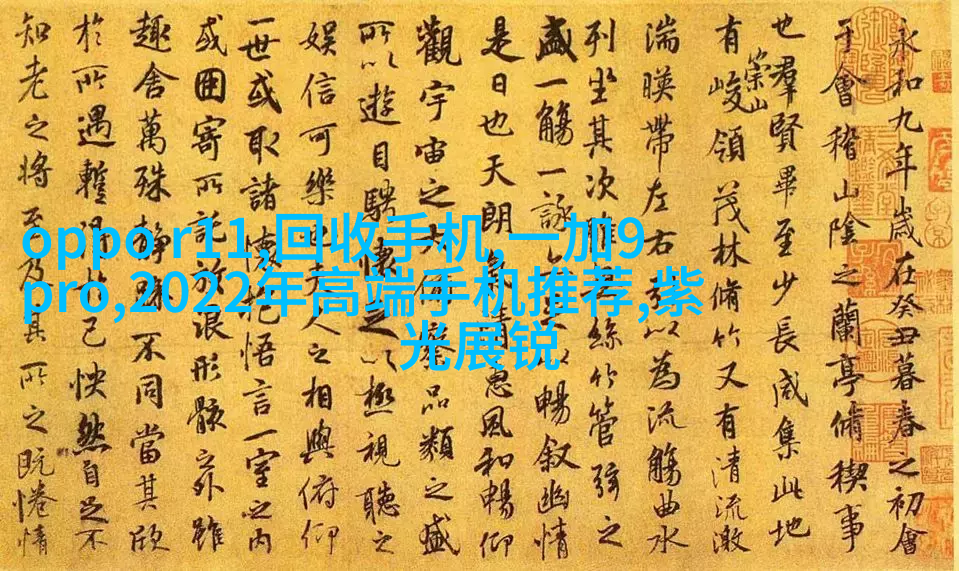 oppo r11,回收手机,一加9
pro,2022年高端手机推荐,紫
光展锐
永和九年歲在癸丑暮春之初會
于會稽山陰之蘭亭脩稧事
也羣賢畢至少長咸集此地
有崇山峻領茂林脩竹又有清流激
湍暎帶左右引以為流觴曲水
列坐其次雖無絲竹管弦之
盛一觴一詠亦足以暢叙幽情
是日也天朗氣清惠風和暢仰
觀宇宙之大俯察品類之盛
所以遊目騁懷足以極視聽之
娛信可樂也夫人之相與俯仰
一世或取諸懷抱悟言一室之內
或因寄所託放浪形骸之外雖
趣舍萬殊靜躁不同當其欣
於所遇蹔得於己怏然自足不
知老之將至及其所之既惓情